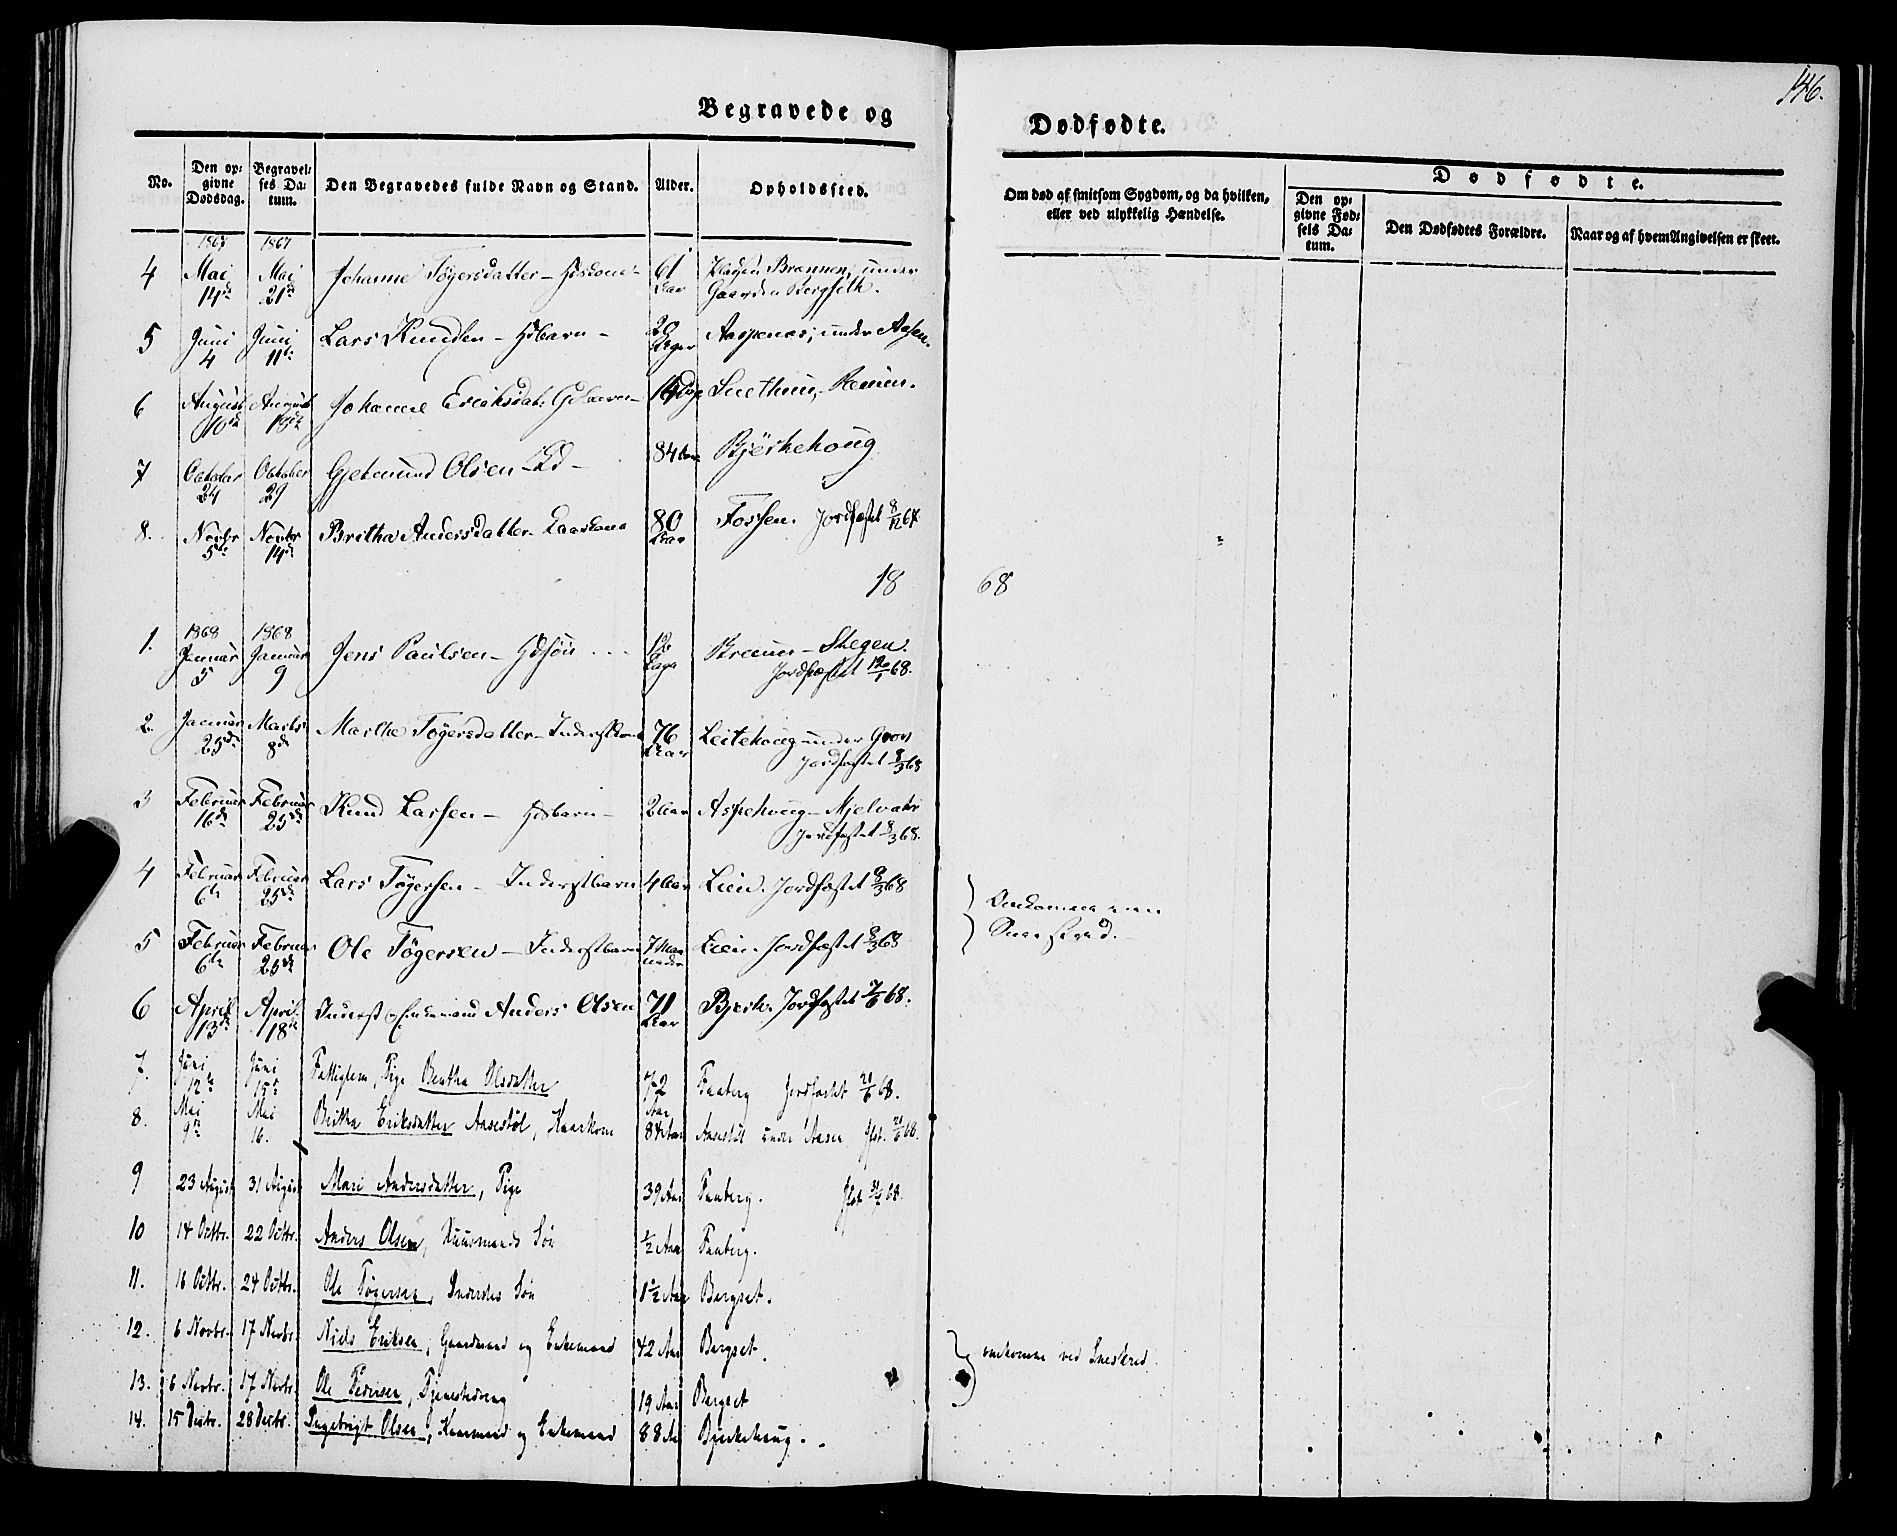 146.
Begravede og
Dødfødte.
No.
Den op-
givne
Dødsdag.
Begravel-
ses Da-
tum.
Den Begravedes fulde Navn og Stand.
Alder.
Opholdssted.
Om død af smitsom Sygdom, og da hvilken,
eller ved ulykkelig Hændelse.
Dødfødte.
Den op-
givne Fød-
sels Da-
tum.
Den Dødfødtes Forældre.
Naar og af hvem Angivelsen er skeet.
1867 1867
4 Mai Mai Johanne Tøgersdatter 61 Brannen, under
14de 21de Aar Gaarden
5 Juni Juni Lars Knudsen - Hsbarn - 20 Aaspenæs, under Aasen.
4 11te Dager
6 August August Johanne Eriksdat. 16 Dage Snethun,
10de 18de
7 October October Gjetmund Olsen - Kd - 84 Aar Bjerkehoug
24 29
8. Novbr Novbr Britha Andersdatter Kaarkone 80 Fossen. Jordfæstet 8/12 67.
5te 14de Aar
18 68
1868 1868
1. Januar Januar Jens Paulsen - 12 - Skegen.
5 9 Dage Jordfæstet 68.
2. Januar Marts Marthe Tøgersdatter - Inderstkone 76 Leitehoug under Gron
25de 8de Aar Jordfæstet 8/3 68
3 Februar Februar Knud Larsen - Hsbarn - 2 Aar Aspehoug - Mjelvær
16de 25de Jordfæstet 8/3 68.
4 Februar Februar Lars Tøgersen - Inderstbarn 4 Aar Lien. Jordfæstet 8/3 68
6te 25de
Omkommen ved
Sneeskred.
5 Februar Februar Ole Tøgersen - Inderstbarn 7 Maa- Lien. Jordfæstet 8/3 68
6te 25de neder
6 April April Inderst Enkemand Anders Olsen 71 Bjerk. Jordfæstet 7/6 68.
13de 18de Aar
7. Juni Juni Fattiglem, Pige Bertha Olsdatter 72 Faaberg Jordfæstet 21/6 68.
12te 15de Aar
8. Mai Mai Britha Eriksdatter Aasestøl, Kaarkone 84 Aar Aasestøl under Aasen Jfst. 21/6 68.
9de 16.
9 23 August 31 August Mari Andersdatter, Pige 39 Aar Faaberg. Jfst. 68.
10 14 Octbr. 22 Octbr. Anders Olsen, Huusmands Søn 1/2 Aar Faaberg.
11. 16 Octbr. 24 Octbr. Ole Tøgersen, Inderstes Søn 1 1/2 Aar Bergset.
12. 6 Novbr. 17 Novbr. Niels Eriksen, Gaardmand og Enkemand 42 Aar Bergset.
omkomne ved Sneskred.
13. 6 Novbr. 17 Novbr. Ole Pedersen, Tjenestedreng 19 Aar Bergset
14. 15 Decbr. 28 Decbr. Ingebrigt Olsen, Kaarmand og Enkemand 88 Aar Bjerkehoug.